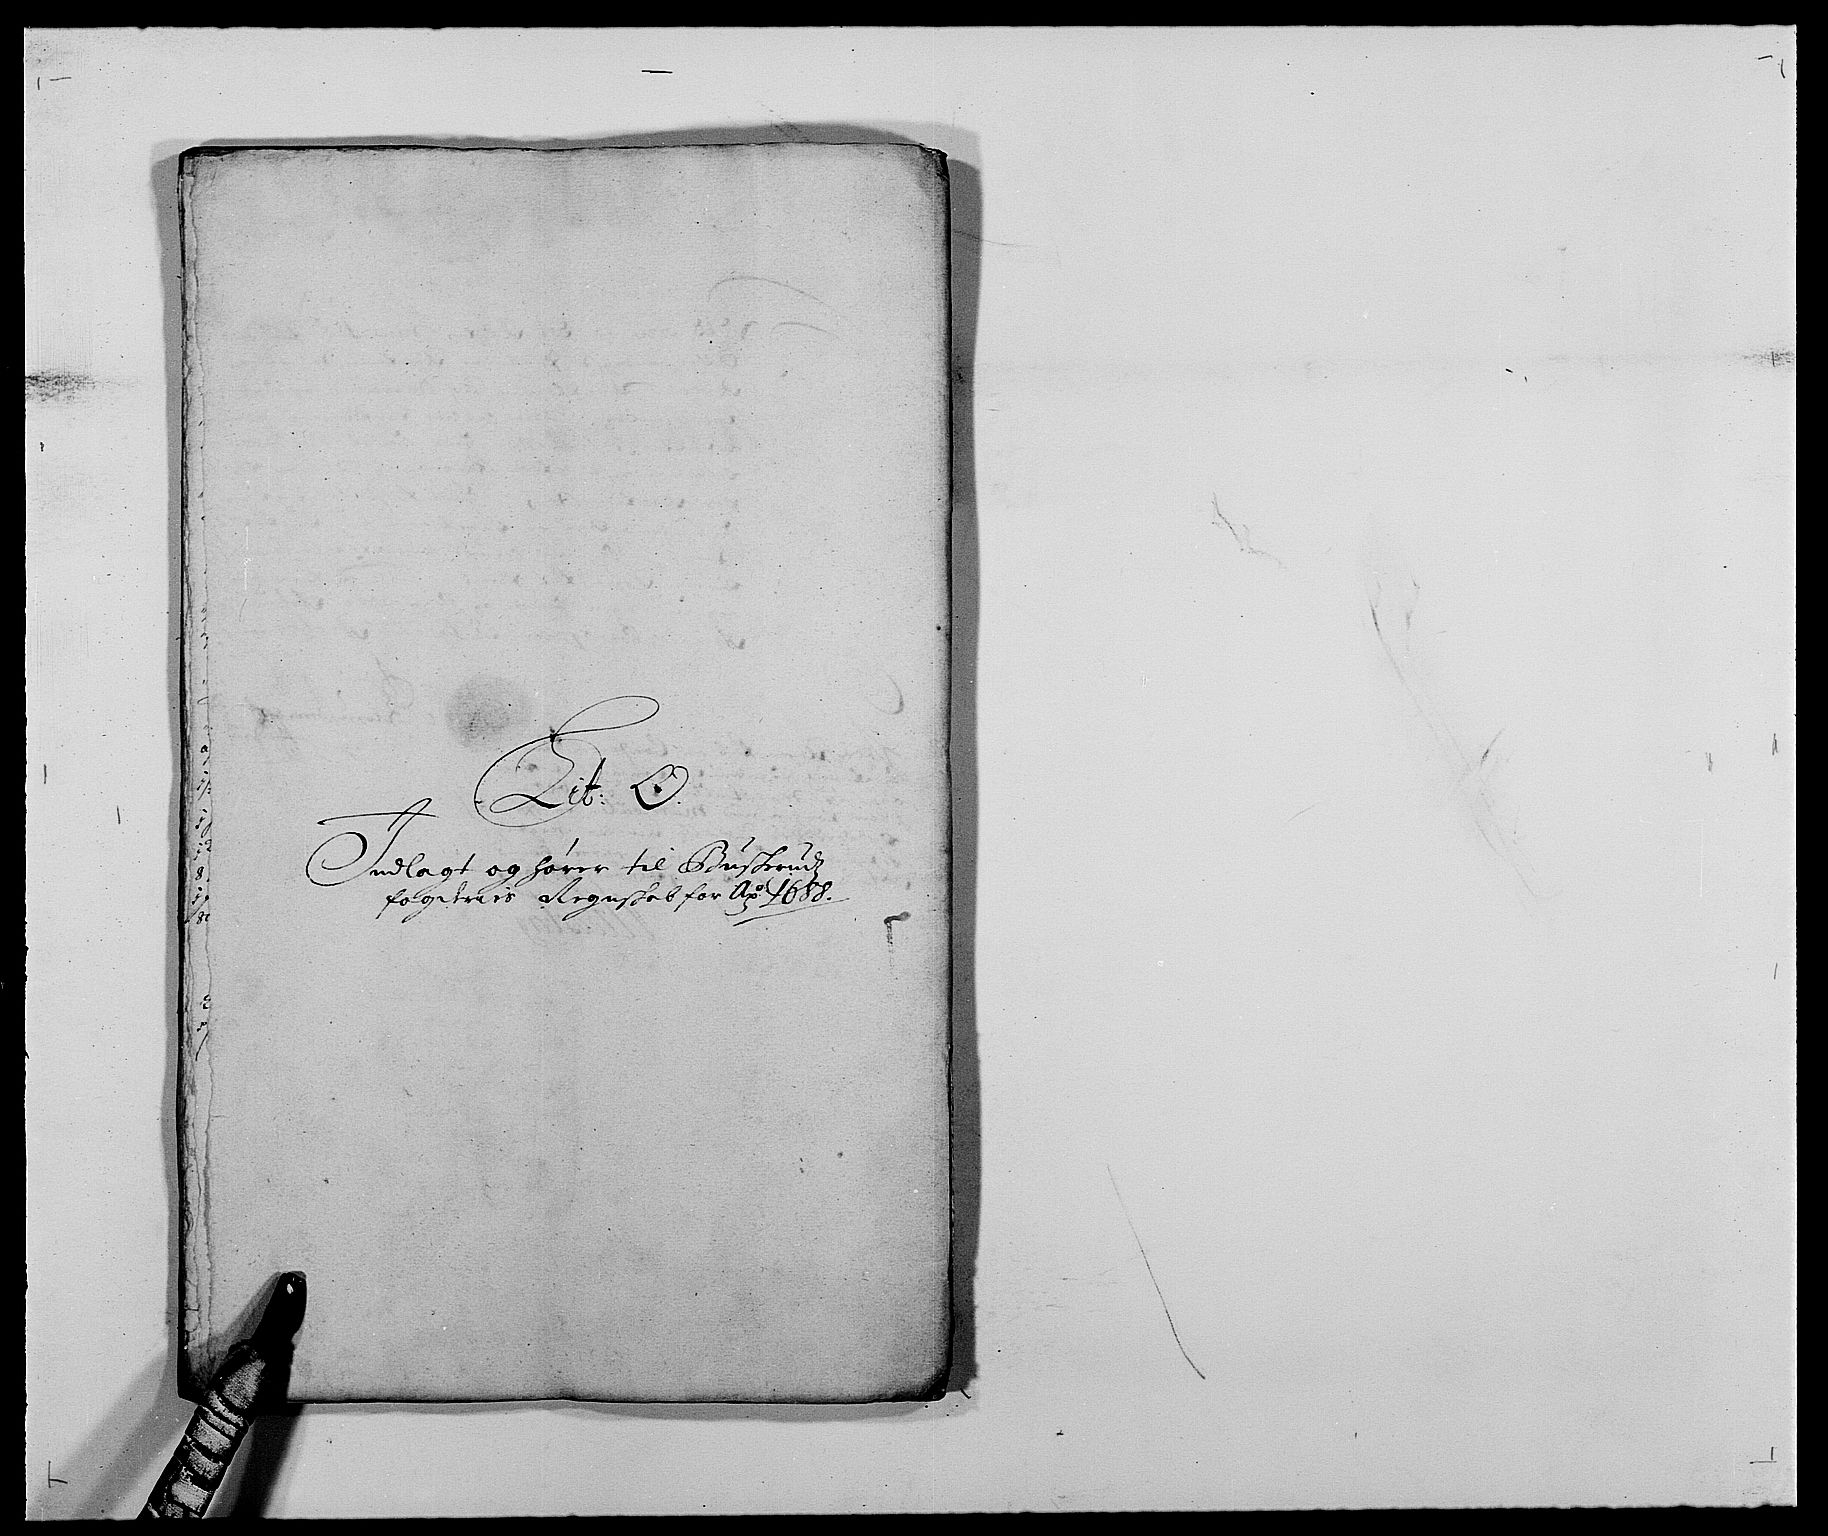 Lit: O.
Indlagt og hører til Buskerudz
fogderies Regnskab for Ao 1688.